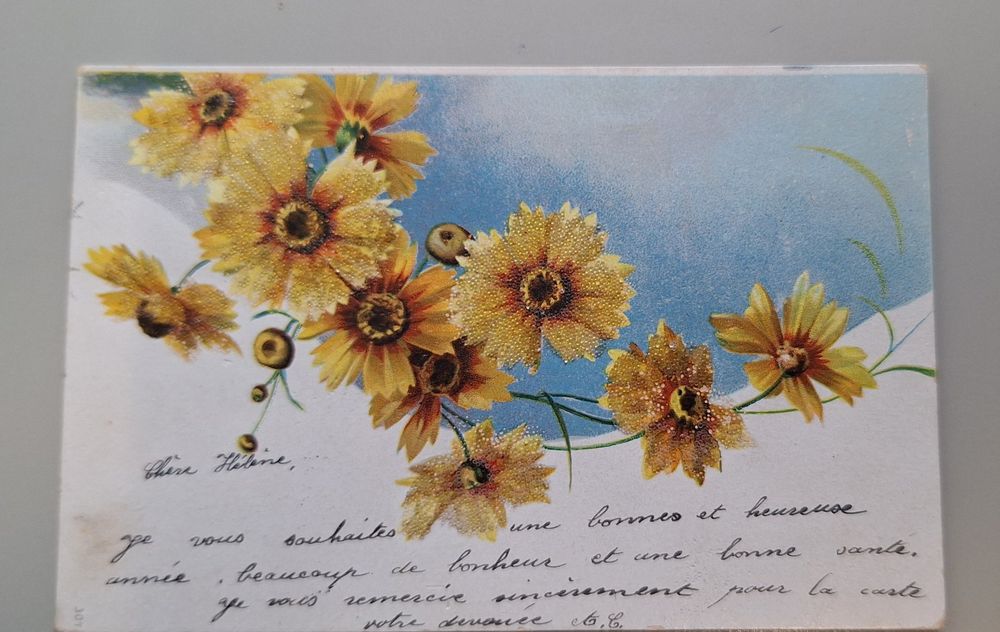 Chère Hélène,
je vous souhaites une bonnes et heureuse
année, beaucoup de bonheur et une bonne santé.
je vous remercie sincèrement pour la carte
votre devouée A.C.
307